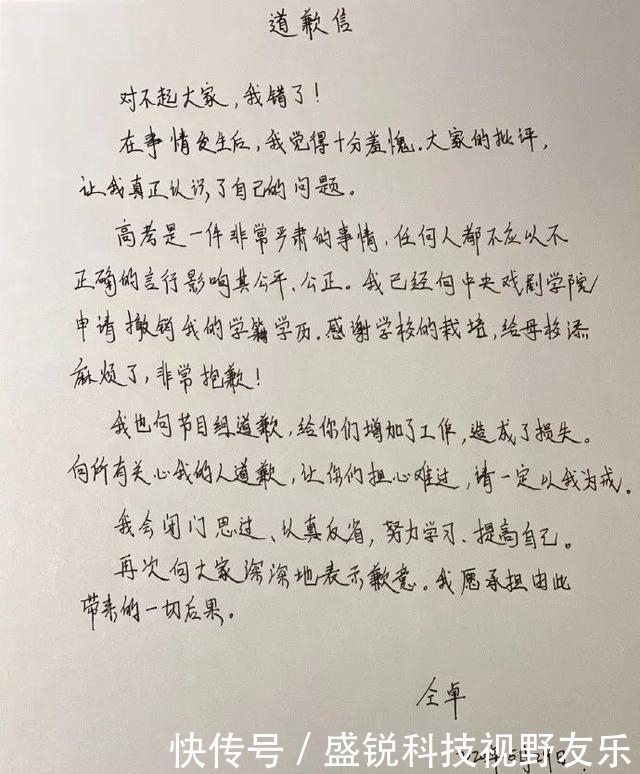 道歉信
对不起大家，我错了！
在事情发生后，我觉得十分羞愧。大家的批评，
让我真正认识了自己的问题。
高考是一件非常严肃的事情，任何人都不应以不
正确的言行影响其公平、公正。我已经向中央戏剧学院
申请撤销我的学籍学历。感谢学校的栽培，给母校添
麻烦了，非常抱歉！
我也向节目组道歉，给你们增加了工作，造成了损失。
向所有关心我的人道歉，让你们担心难过，请一定以我为戒。
我会闭门思过、认真反省，努力学习、提高自己。
再次向大家深深地表示歉意。我愿承担由此
带来的一切后果。
仝卓
快传号/盛锐科技视野友乐